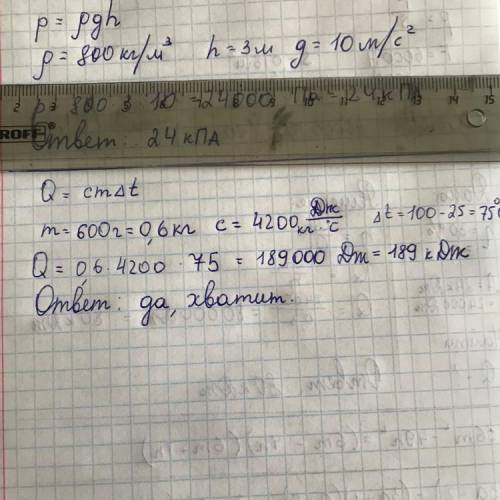 p = ρgh
ρ = 800 кг/м³ h = 3м g = 10 м/с²
p = 800 · 3 · 10 = 24000 Па = 24 кПа
2 3 4 5 6 7 8 9 10 11 12 13 14 15
ROFF®
Ответ: 24 кПА
Q = cmΔt
m = 600г = 0,6 кг c = 4200 Дж/кг·°С Δt = 100 - 25 = 75°
Q = 0,6 · 4200 · 75 = 189000 Дж = 189 кДж
Ответ: да, хватит.